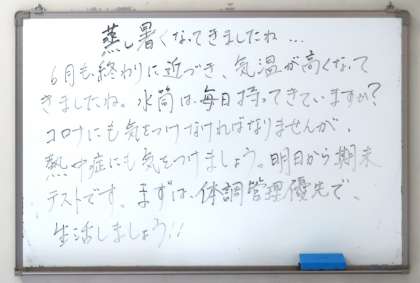 蒸し暑くなってきましたね…
6月も終わりに近づき、気温が高くなって
きましたね。水筒は毎日持ってきていますか?
コロナにも気をつけなければなりませんが、
熱中症にも気をつけましょう。明日から期末
テストです。まずは体調管理優先で、
生活しましょう!!